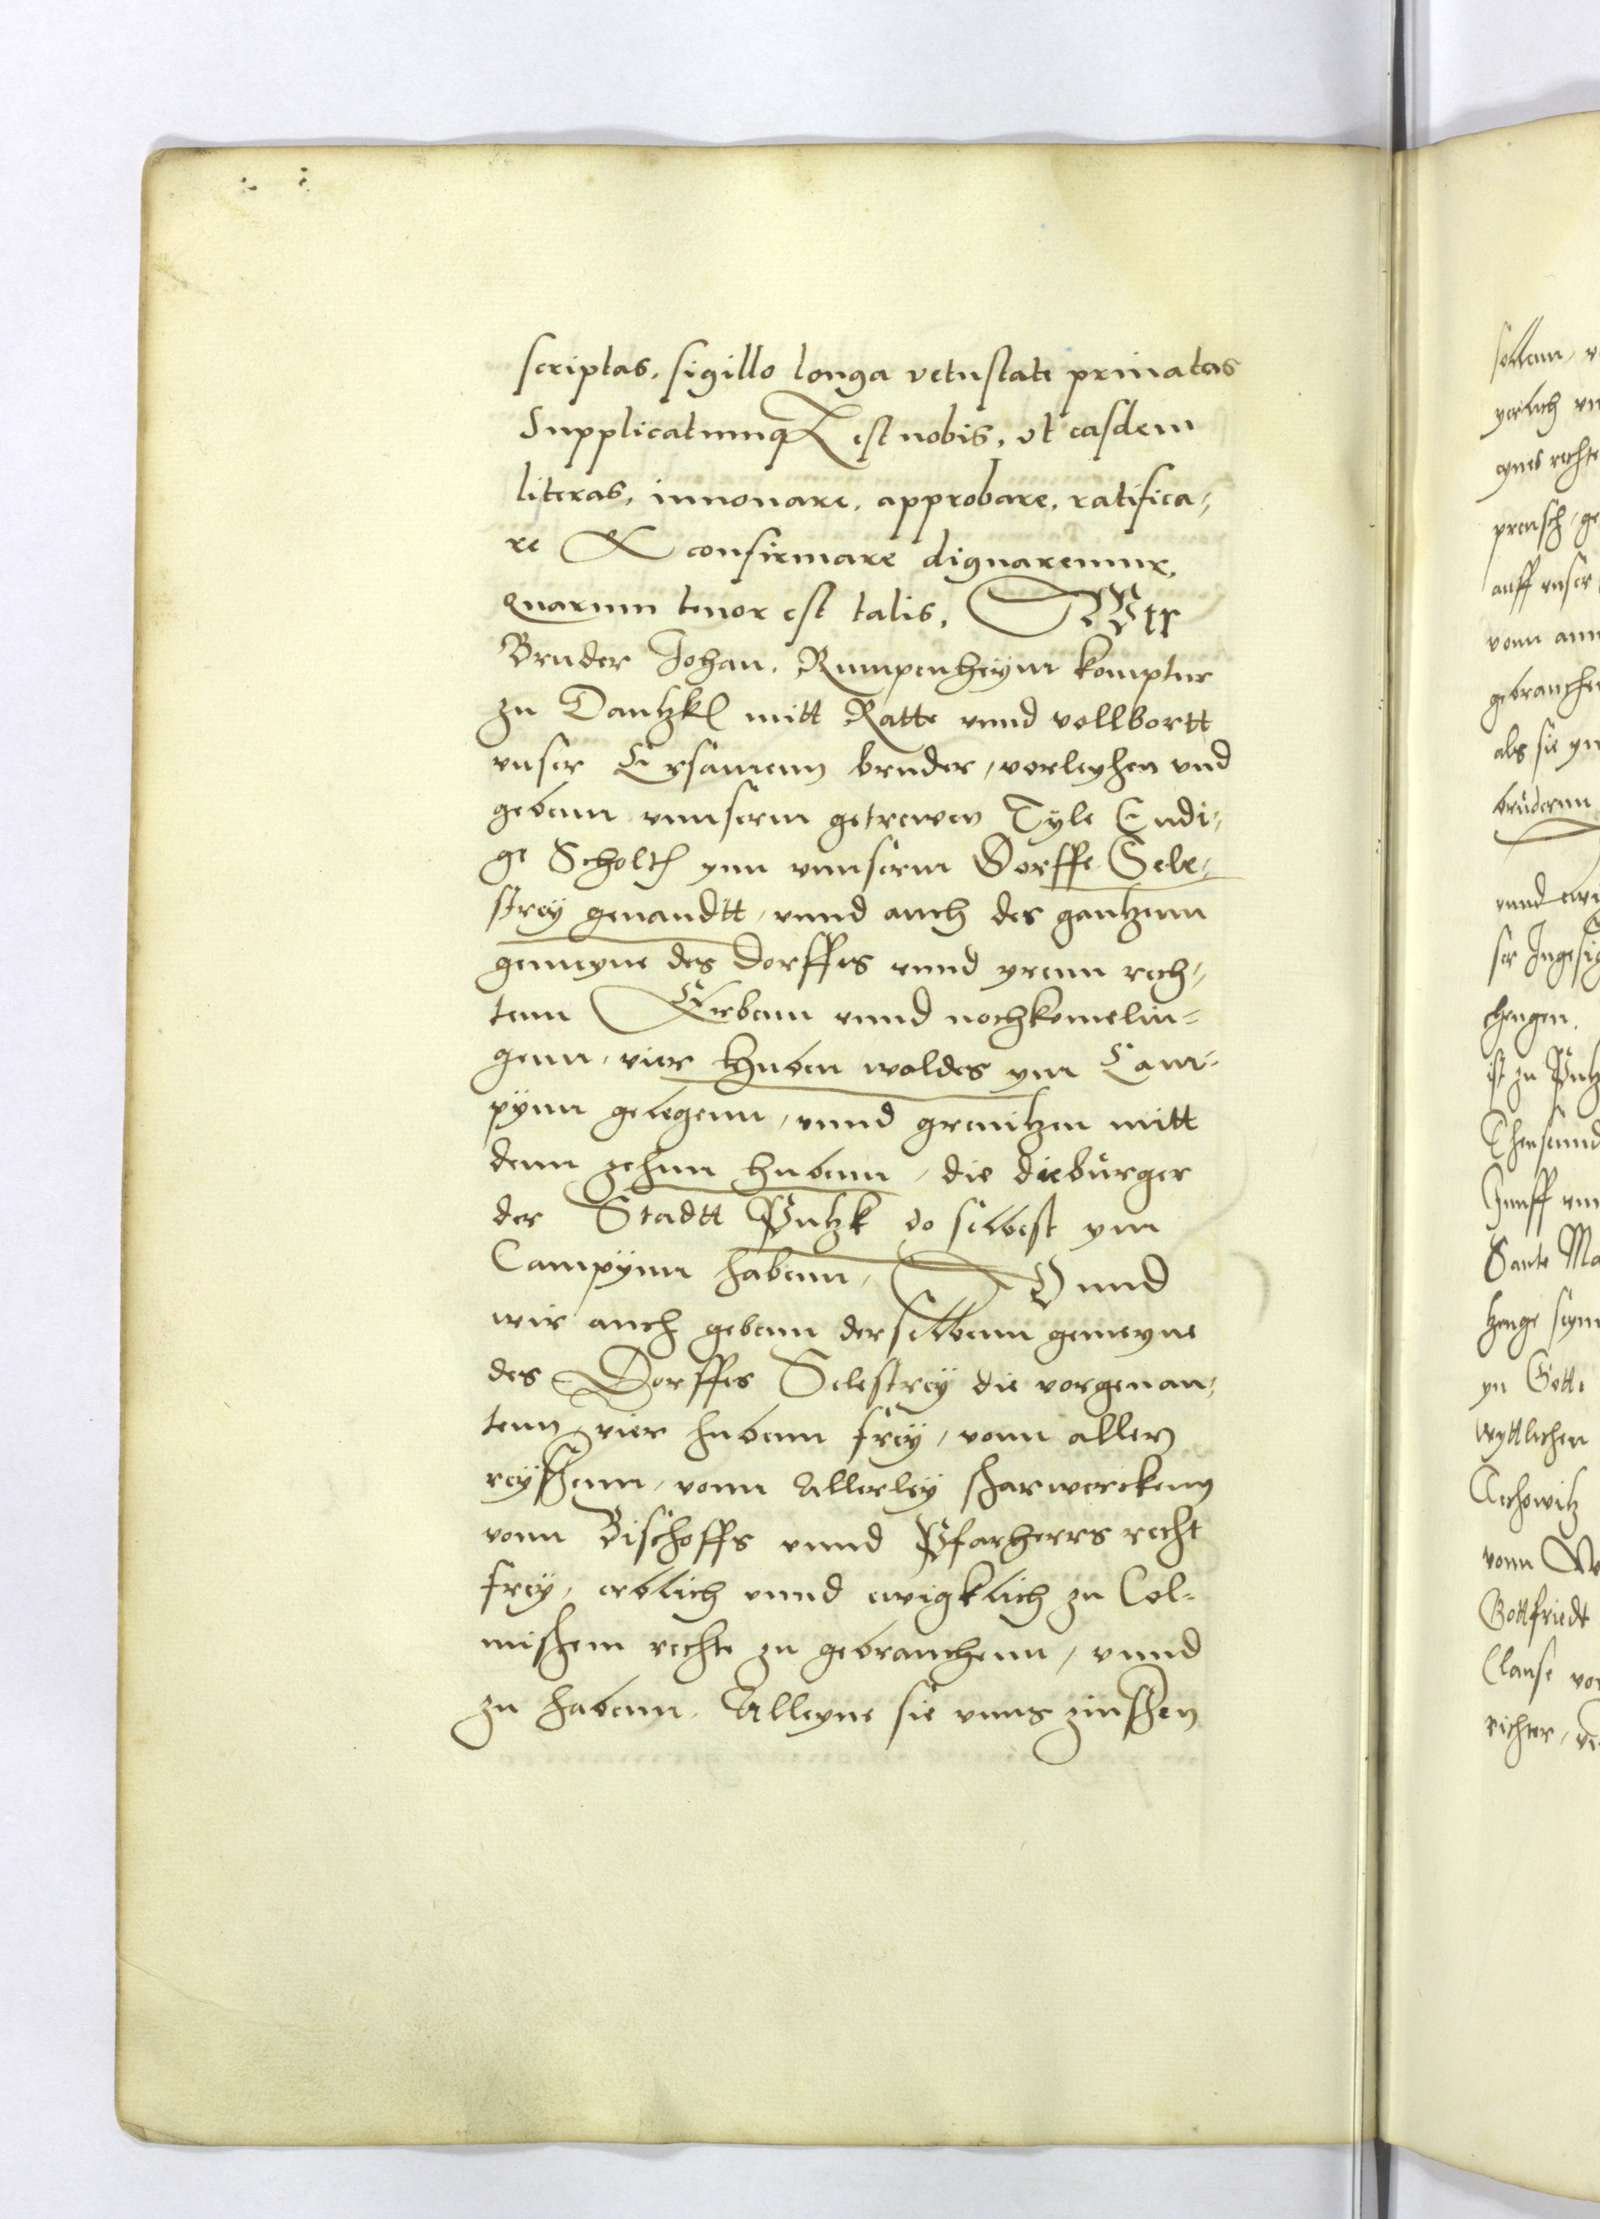 scriptas, sigillo longa vetustate priuatas
Supplicatumq est nobis, vt easdem
literas, innouare, approbare, ratifica-
re & confirmare dignaremur,
quarum tenor est talis, Wir
Bruder Johan. Rumpenheym komptur
zu Dantzk mitt Ratte vnnd vollbortt
vnser Ersamenn bruder, vorleyhen vnd
gebenn vnnserm getrewen Tyle Endi-
ge Scholtz ynn vnnserm Dorffe Sele-
strey genandtt, vnnd auch der gantzenn
gemeyne des dorffes vnnd yrenn rech-
tenn Erbenn vnnd nochkomelin-
genn, vier Huben waldes ym Cam-
pynn gelegenn, vnnd grenitzen mitt
denn zehnn Hubenn, die die bürger
der Stadtt Putzk do selbest ym
Campynn habenn, Vnnd
wir auch gebenn derselbenn gemeyne
des Dorffes Selestrey die vorgenan-
tenn vier hubenn frey, vonn allen
reyßenn, vonn Allerley sharwerckenn
vonn Bischoffs vnnd Pfarherrs recht
frey, erblich vnnd ewigklich zu Col-
mishem rechte zu gebrauchenn, vnnd
zu habenn. Alleyne sie vnns zinßen
sollenn,
yerlich
eynes rechte
auff vnser
vonn
gebrauchen
als sie
brüdernn
vnnd
ser
ist zu
Sante
yn Gott
wyttlichen
vonn
Gottfriedt
Clause
richter,